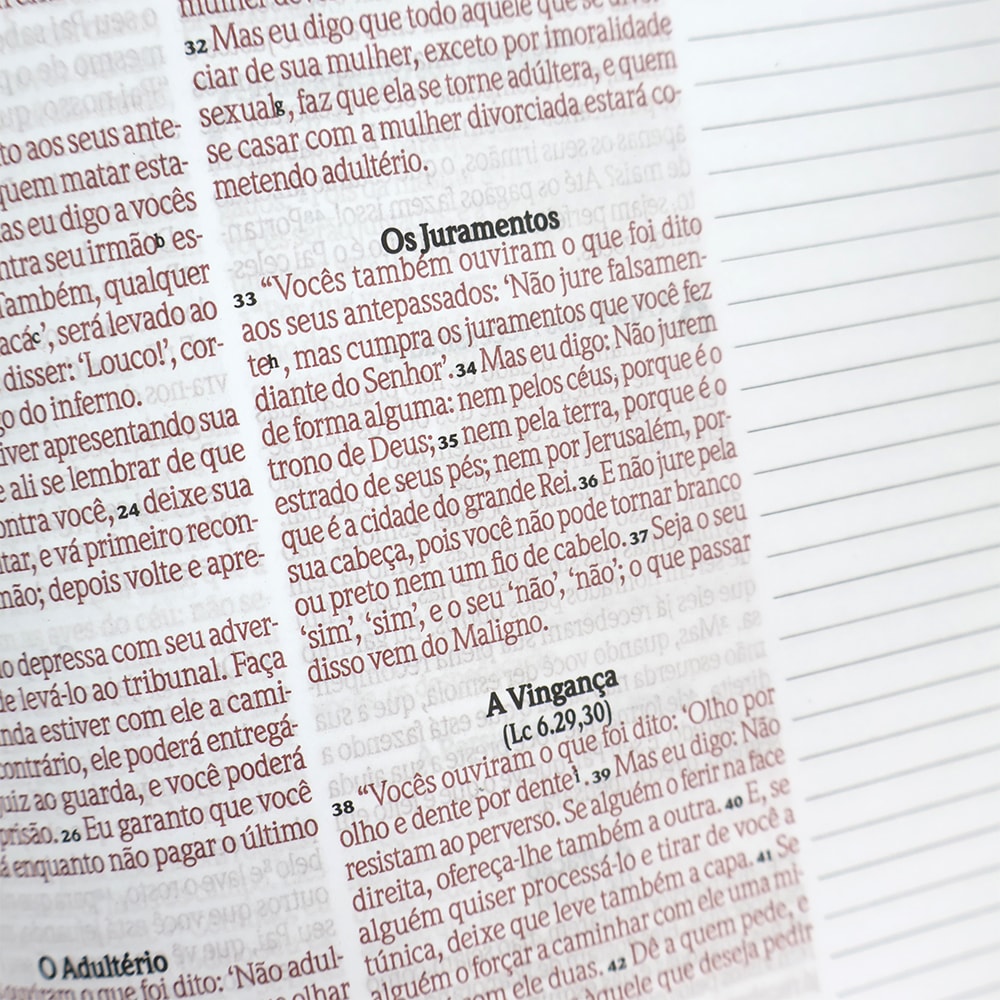 to aos seus ante-
quem matar esta-
mas eu digo a vocês
ntra seu irmãob es-
Também, qualquer
acác’, será levado ao
disser: ‘Louco!’, cor-
go do inferno.
iver apresentando sua
e ali se lembrar de que
ontra você, 24 deixe sua
tar, e vá primeiro recon-
mão; depois volte e apre-
o depressa com seu adver-
de levá-lo ao tribunal. Faça
nda estiver com ele a cami-
contrário, ele poderá entregá-
uiz ao guarda, e você poderá
prisão. 26 Eu garanto que você
á enquanto não pagar o último
O Adultério
foi dito: ‘Não adul-
olhar
32 Mas eu digo que todo aquele que se divor-
ciar de sua mulher, exceto por imoralidade
sexualg, faz que ela se torne adúltera, e quem
se casar com a mulher divorciada estará co-
metendo adultério.
Os Juramentos
33 “Vocês também ouviram o que foi dito
aos seus antepassados: ‘Não jure falsamen-
teh, mas cumpra os juramentos que você fez
diante do Senhor’. 34 Mas eu digo: Não jurem
de forma alguma: nem pelos céus, porque é o
trono de Deus; 35 nem pela terra, porque é o
estrado de seus pés; nem por Jerusalém, por-
que é a cidade do grande Rei. 36 E não jure pela
sua cabeça, pois você não pode tornar branco
ou preto nem um fio de cabelo. 37 Seja o seu
‘sim’, ‘sim’, e o seu ‘não’, ‘não’; o que passar
disso vem do Maligno.
A Vingança
(Lc 6.29,30)
38 “Vocês ouviram o que foi dito: ‘Olho por
olho e dente por dente’i. 39 Mas eu digo: Não
resistam ao perverso. Se alguém o ferir na face
direita, ofereça-lhe também a outra. 40 E, se
alguém quiser processá-lo e tirar de você a
túnica, deixe que leve também a capa. 41 Se
alguém o forçar a caminhar com ele uma mi-
com ele duas. 42 Dê a quem pede, e
àquele que deseja pedir